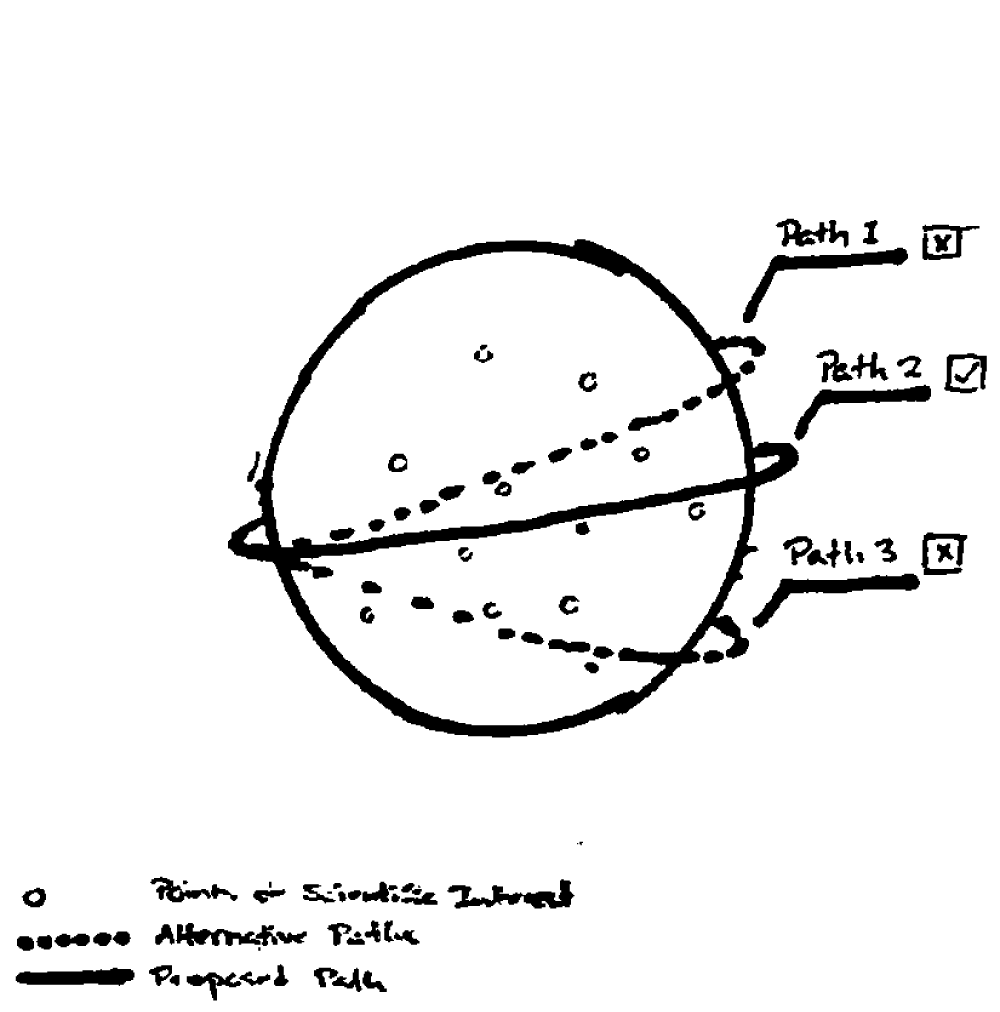 Path 1
Path 2
Path 3
Points of Scientific Interest
Alternative Paths
Proposed Path